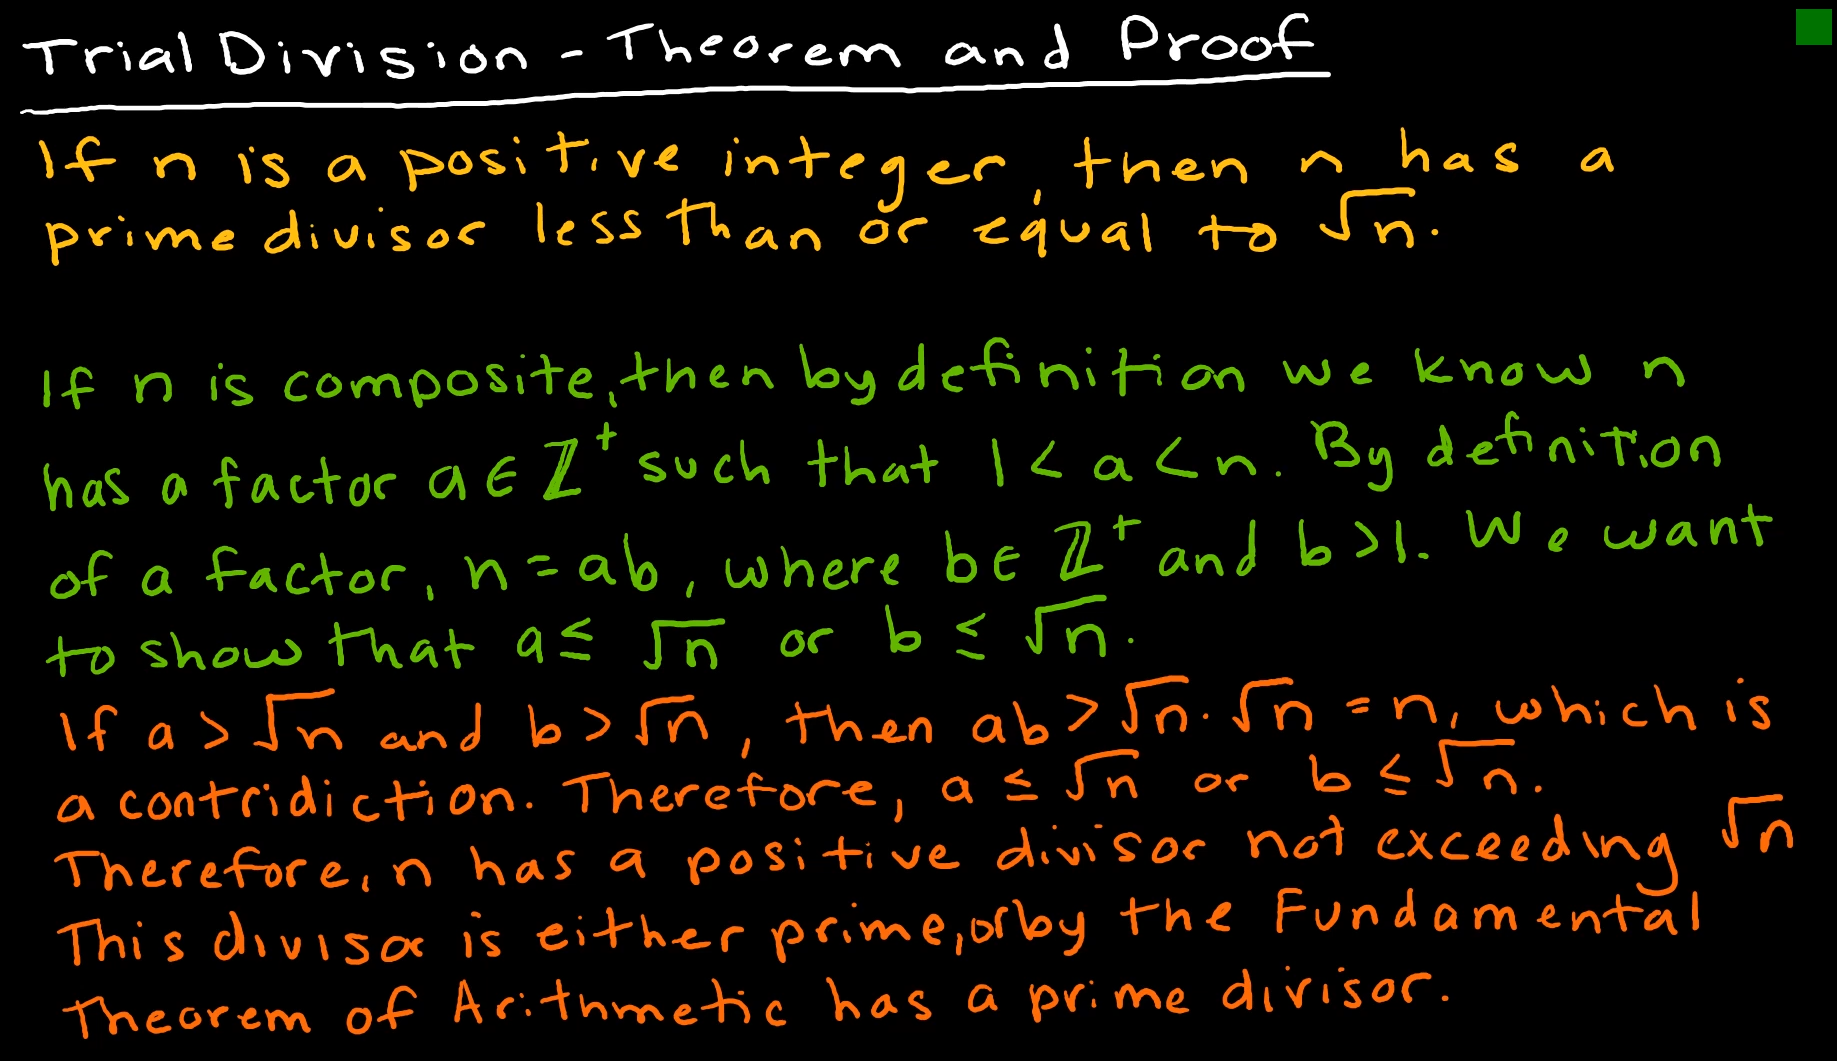 Trial Division - Theorem and Proof
If n is a positive integer, then n has a
prime divisor less than or equal to √n.
If n is composite, then by definition we know n
has a factor a ∈ ℤ⁺ such that 1 < a < n. By definition
of a factor, n = ab, where b ∈ ℤ⁺ and b > 1. We want
to show that a ≤ √n or b ≤ √n.
If a > √n and b > √n, then ab > √n · √n = n, which is
a contridiction. Therefore, a ≤ √n or b ≤ √n.
Therefore, n has a positive divisor not exceeding √n
This divisor is either prime, or by the Fundamental
Theorem of Arithmetic has a prime divisor.